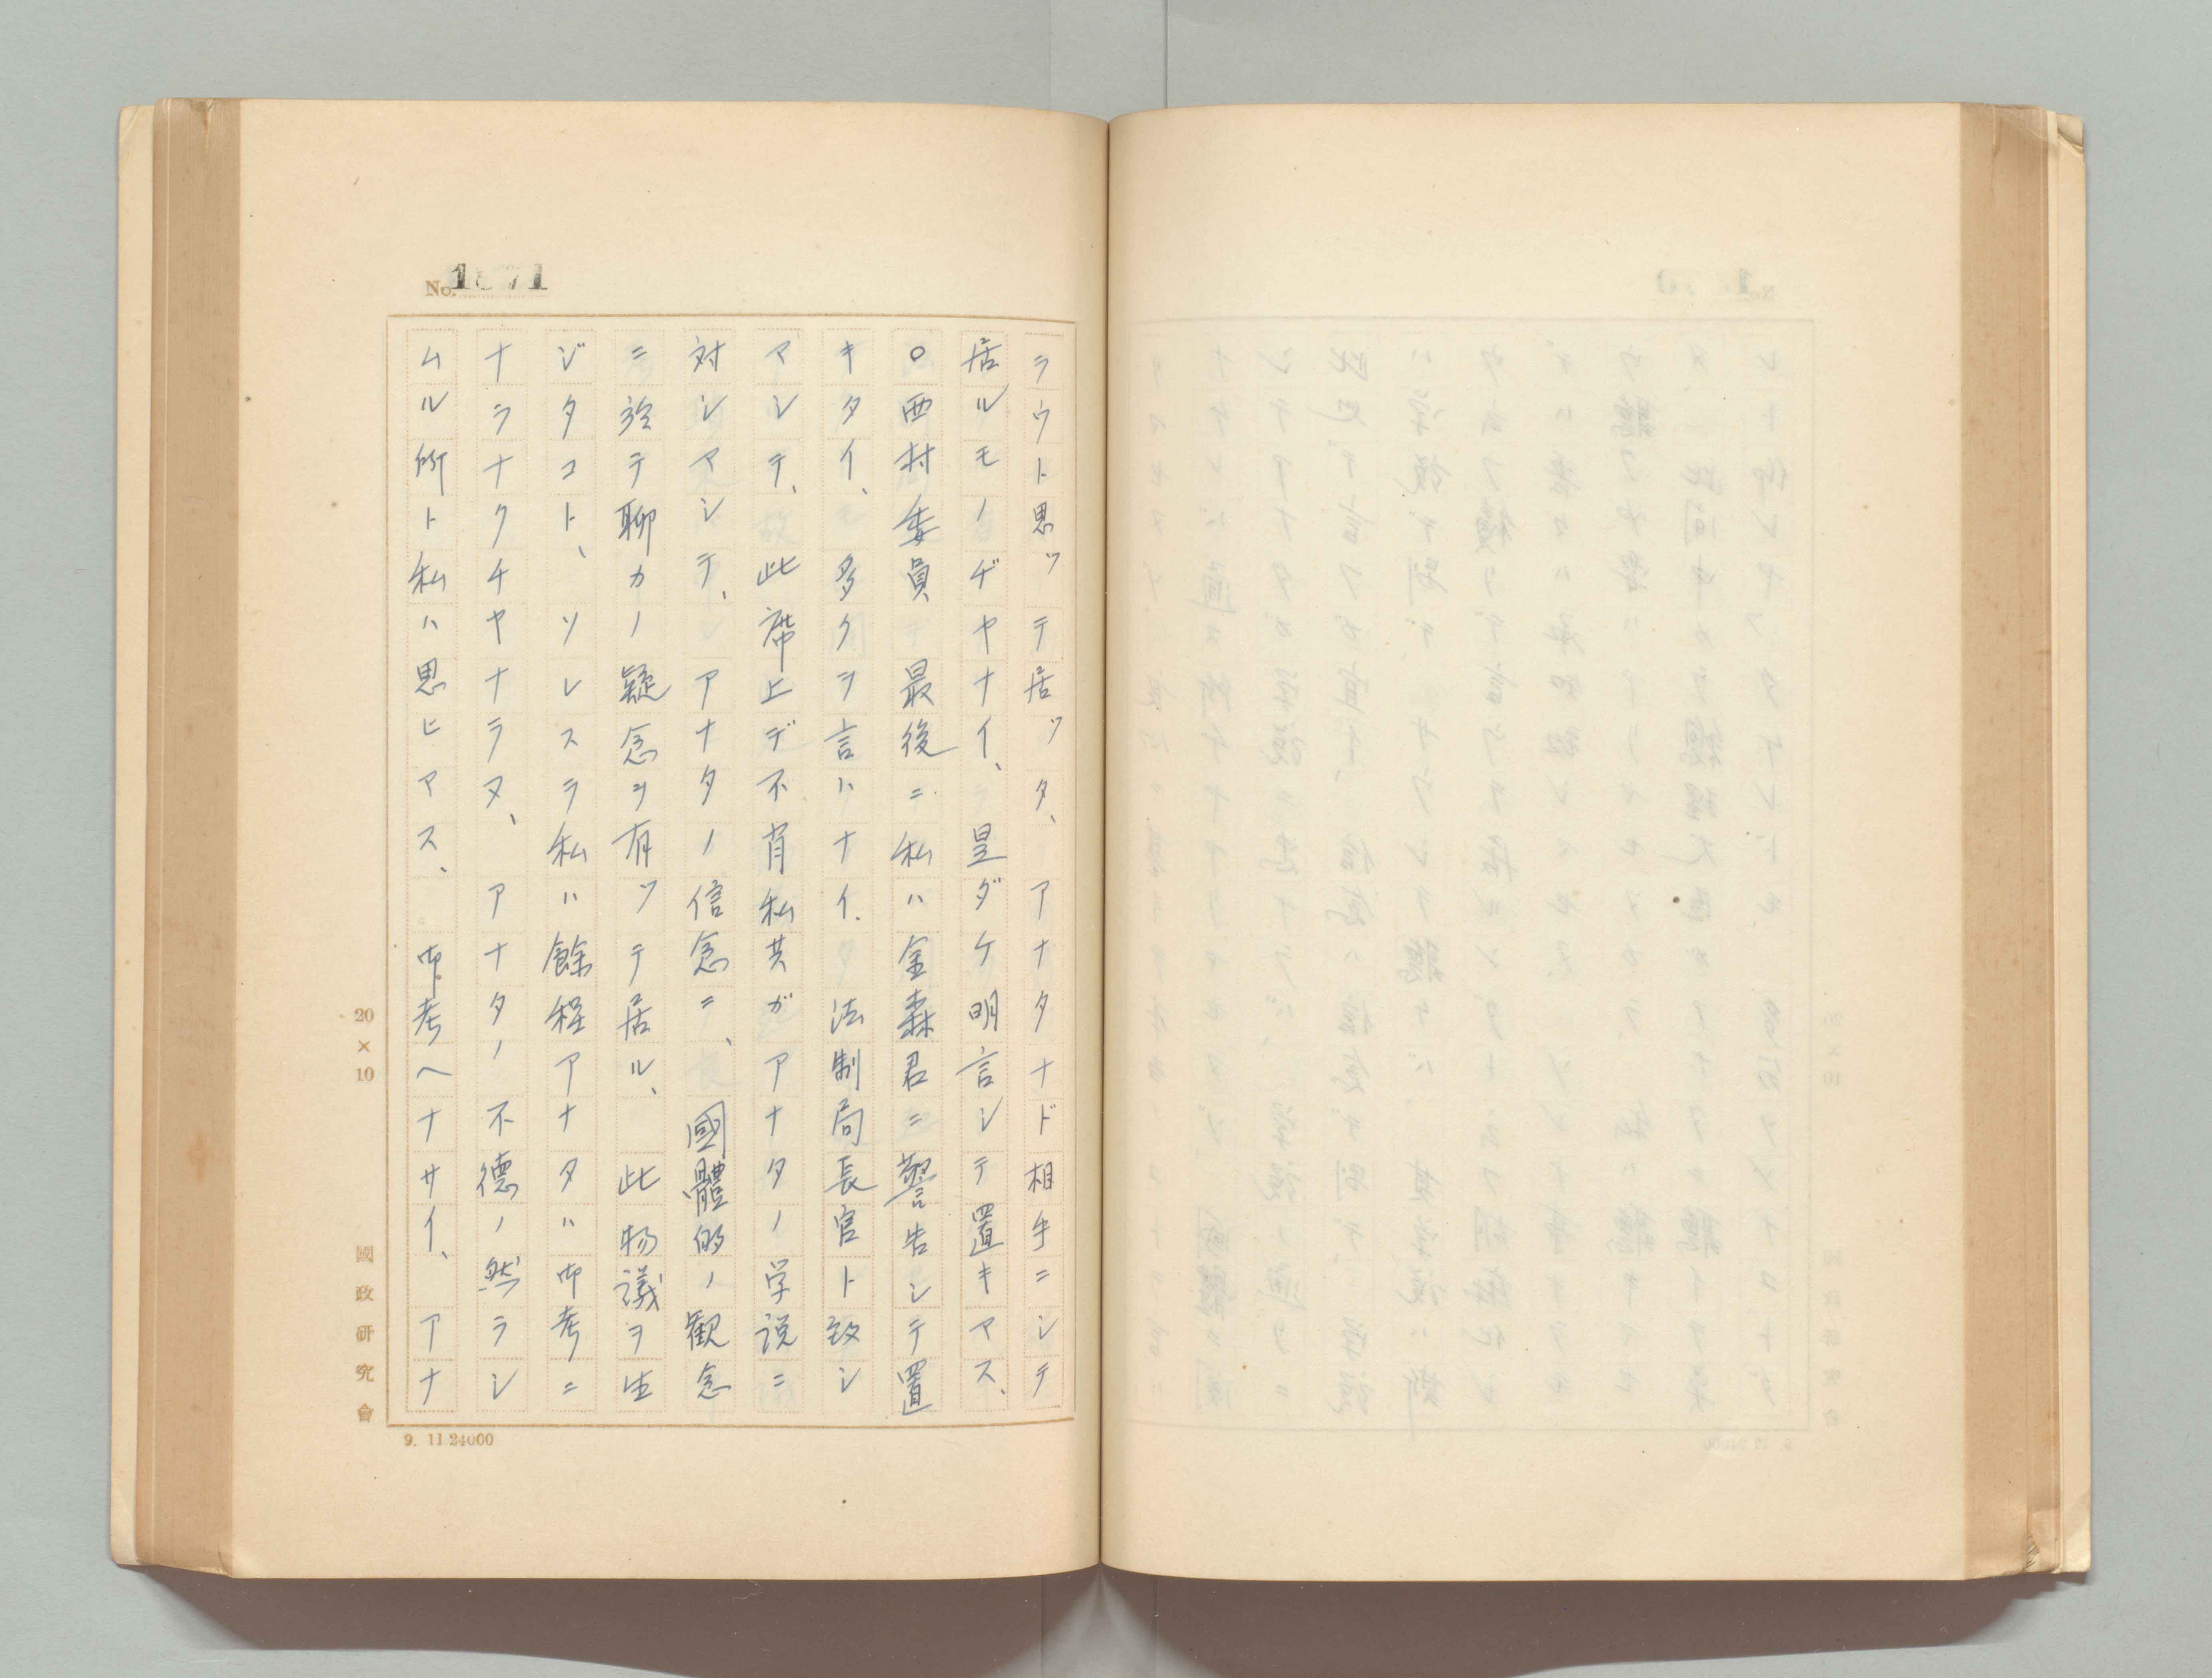 No. 1371
ラウト思ッテ居ッタ、アナタナド相手ニシテ
居ルモノヂヤナイ、是ダケ明言シテ置キマス、
○西村委員 最後ニ私ハ金森君ニ警告シテ置
キタイ、多クヲ言ハナイ、法制局長官ト致シ
マシテ、此席上デ不肖私共ガアナタノ学説ニ
対シマシテ、アナタノ信念ニ、國體的ノ観念
ニ於テ聊カノ疑念ヲ有ッテ居ル、此物議ヲ生
ジタコト、ソレスラ私ハ餘程アナタハ御考ニ
ナラナクチヤナラヌ、アナタノ不徳ノ然ラシ
ムル所ト私ハ思ヒマス、御考ヘナサイ、アナ
20×10
國政研究會
9. 11 24000